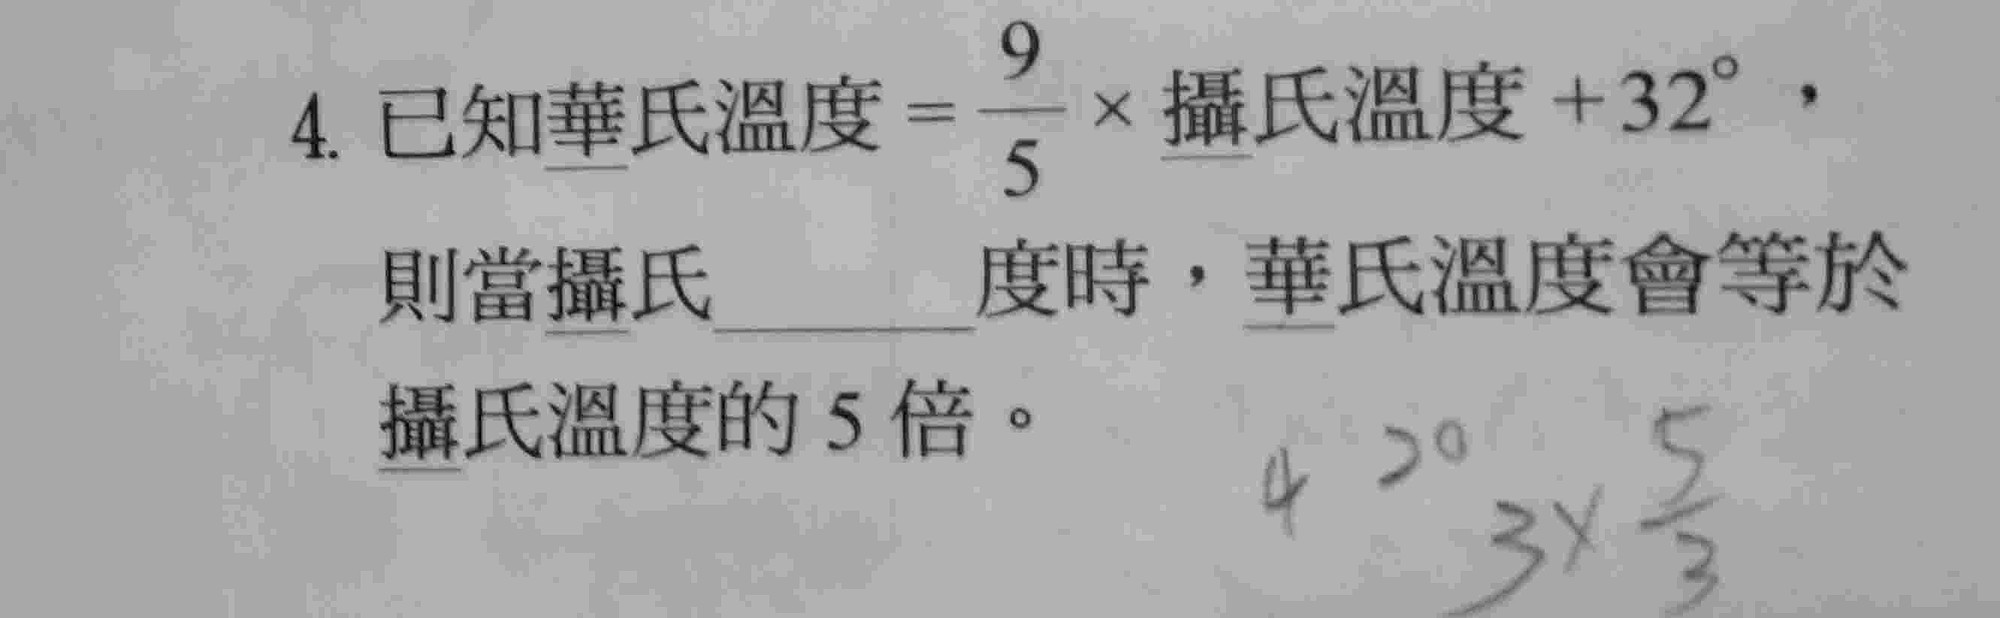 4. 已知華氏溫度 = 9/5 × 攝氏溫度 + 32°，
則當攝氏______度時，華氏溫度會等於
攝氏溫度的 5 倍。
4 20
3× 5/3